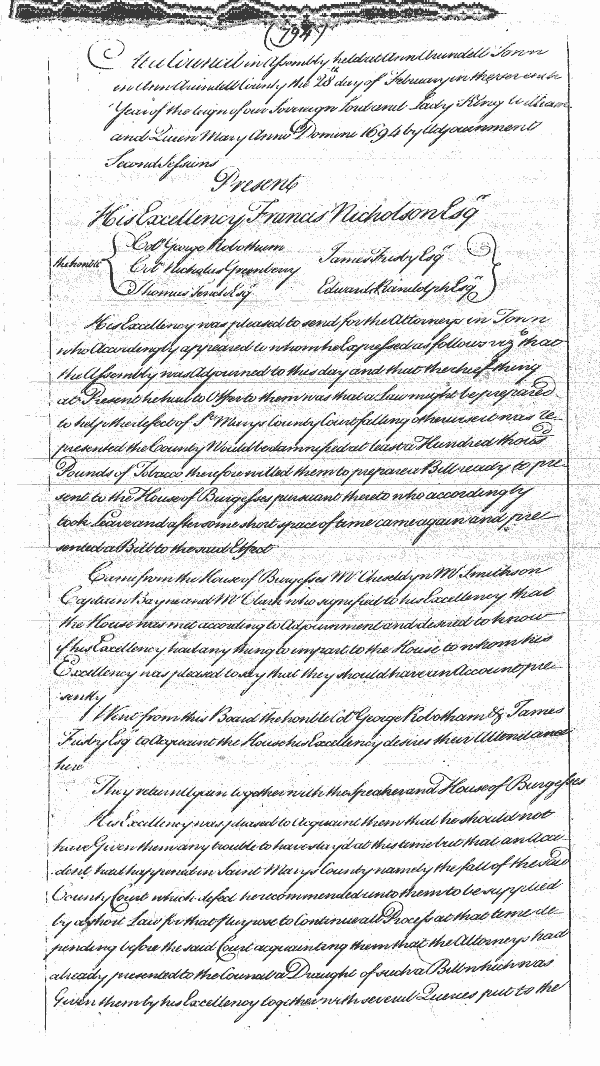 (794)
At a Council in Assembly held at Ann Arundell Town
in Ann Arundell County the 28th day of February in the seventh
Year of the reign of our Sovereign Lord and Lady King William
and Queen Mary Anno Domini 1694 by Adjournment
Second Sessions
Present
His Excellency Francis Nicholson Esqr
the honble { Coll George Robotham James Frisby Esqr
Coll Nicholas Greenberry Edward Randolph Esqr }
Thomas Tench Esqr
His Excellency was pleased to send for the Attorneys in Town
who Accordingly appeared to whom he Expressed as follows vizt that
the Assembly was Adjourned to this day and that the chief thing
at Present he had to Offer to them was that a Law might be prepared
to help the defect of St Marys County Court falling otherwise it was re-
presented the County Would be damnified at least a Hundred thousd
Pounds of Tobacco therefore willed them to prepare a Bill ready to pre-
sent to the House of Burgesses pursuant thereto who accordingly
took Leave and after some short space of time came again and pre-
sented a Bill to the said Effect
Came from the House of Burgesses Mr Cheseldyn Mr Smithson
Captain Bayne and Mr Clark who signified to his Excellency that
the House was met according to Adjournment and desired to know
if his Excellency had any thing to impart to the House to whom his
Excellency was pleased to say that they should have an Account pre-
sently
Went from this Board the honble Col George Robotham & James
Frisby Esqr to Acquaint the House his Excellency desires their Attendance
here
They return again together with the Speaker and House of Burgesses
His Excellency was pleased to Acquaint them that he should not
have Given them any trouble to have stay'd at this time but that an Acci-
dent had happened in Saint Marys County namely the fall of the said
County Court which defect he recommended unto them to be supplied
by a short Law for that Purpose to Continue all Process at that time de-
pending before the said Court acquainting them that the Attorneys had
already presented to the Council a Draught of such a Bill which was
Given them by his Excellency together with several Queries put to the